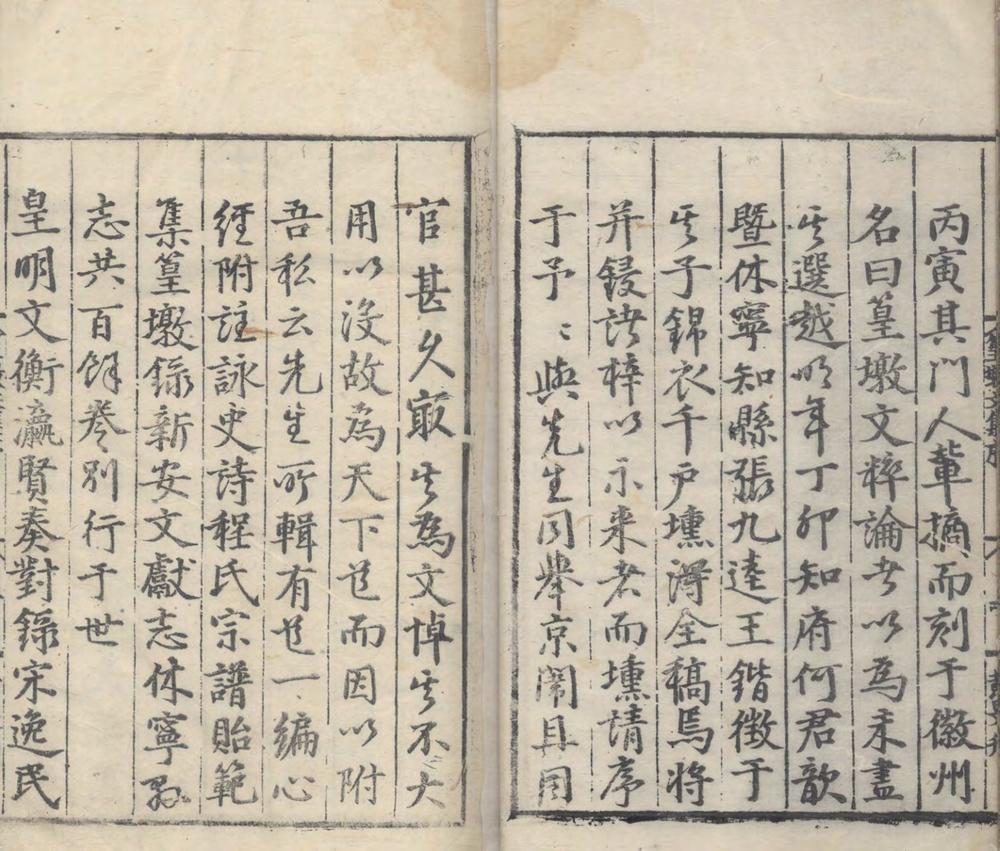 丙寅其門人輩摘而刻于徽州
名曰篁墩文粹論者以為未盡
其選越明年丁卯知府何君歆
暨休寧知縣張九逵王鍇徴于
其子錦衣千戶壎得全稿焉將
并鋟諸梓以示来者而壎請序
于予〻與先生同舉京闈且同
官甚久寂其為文悼其不大
用以沒故為天下道而因以附
吾私云先生所輯有道一編心
經附註詠史詩程氏宗譜貽範
集篁墩録新安文獻志休寧縣
志共百餘卷別行于世
皇明文衡瀛賢奏對錄宋逸民